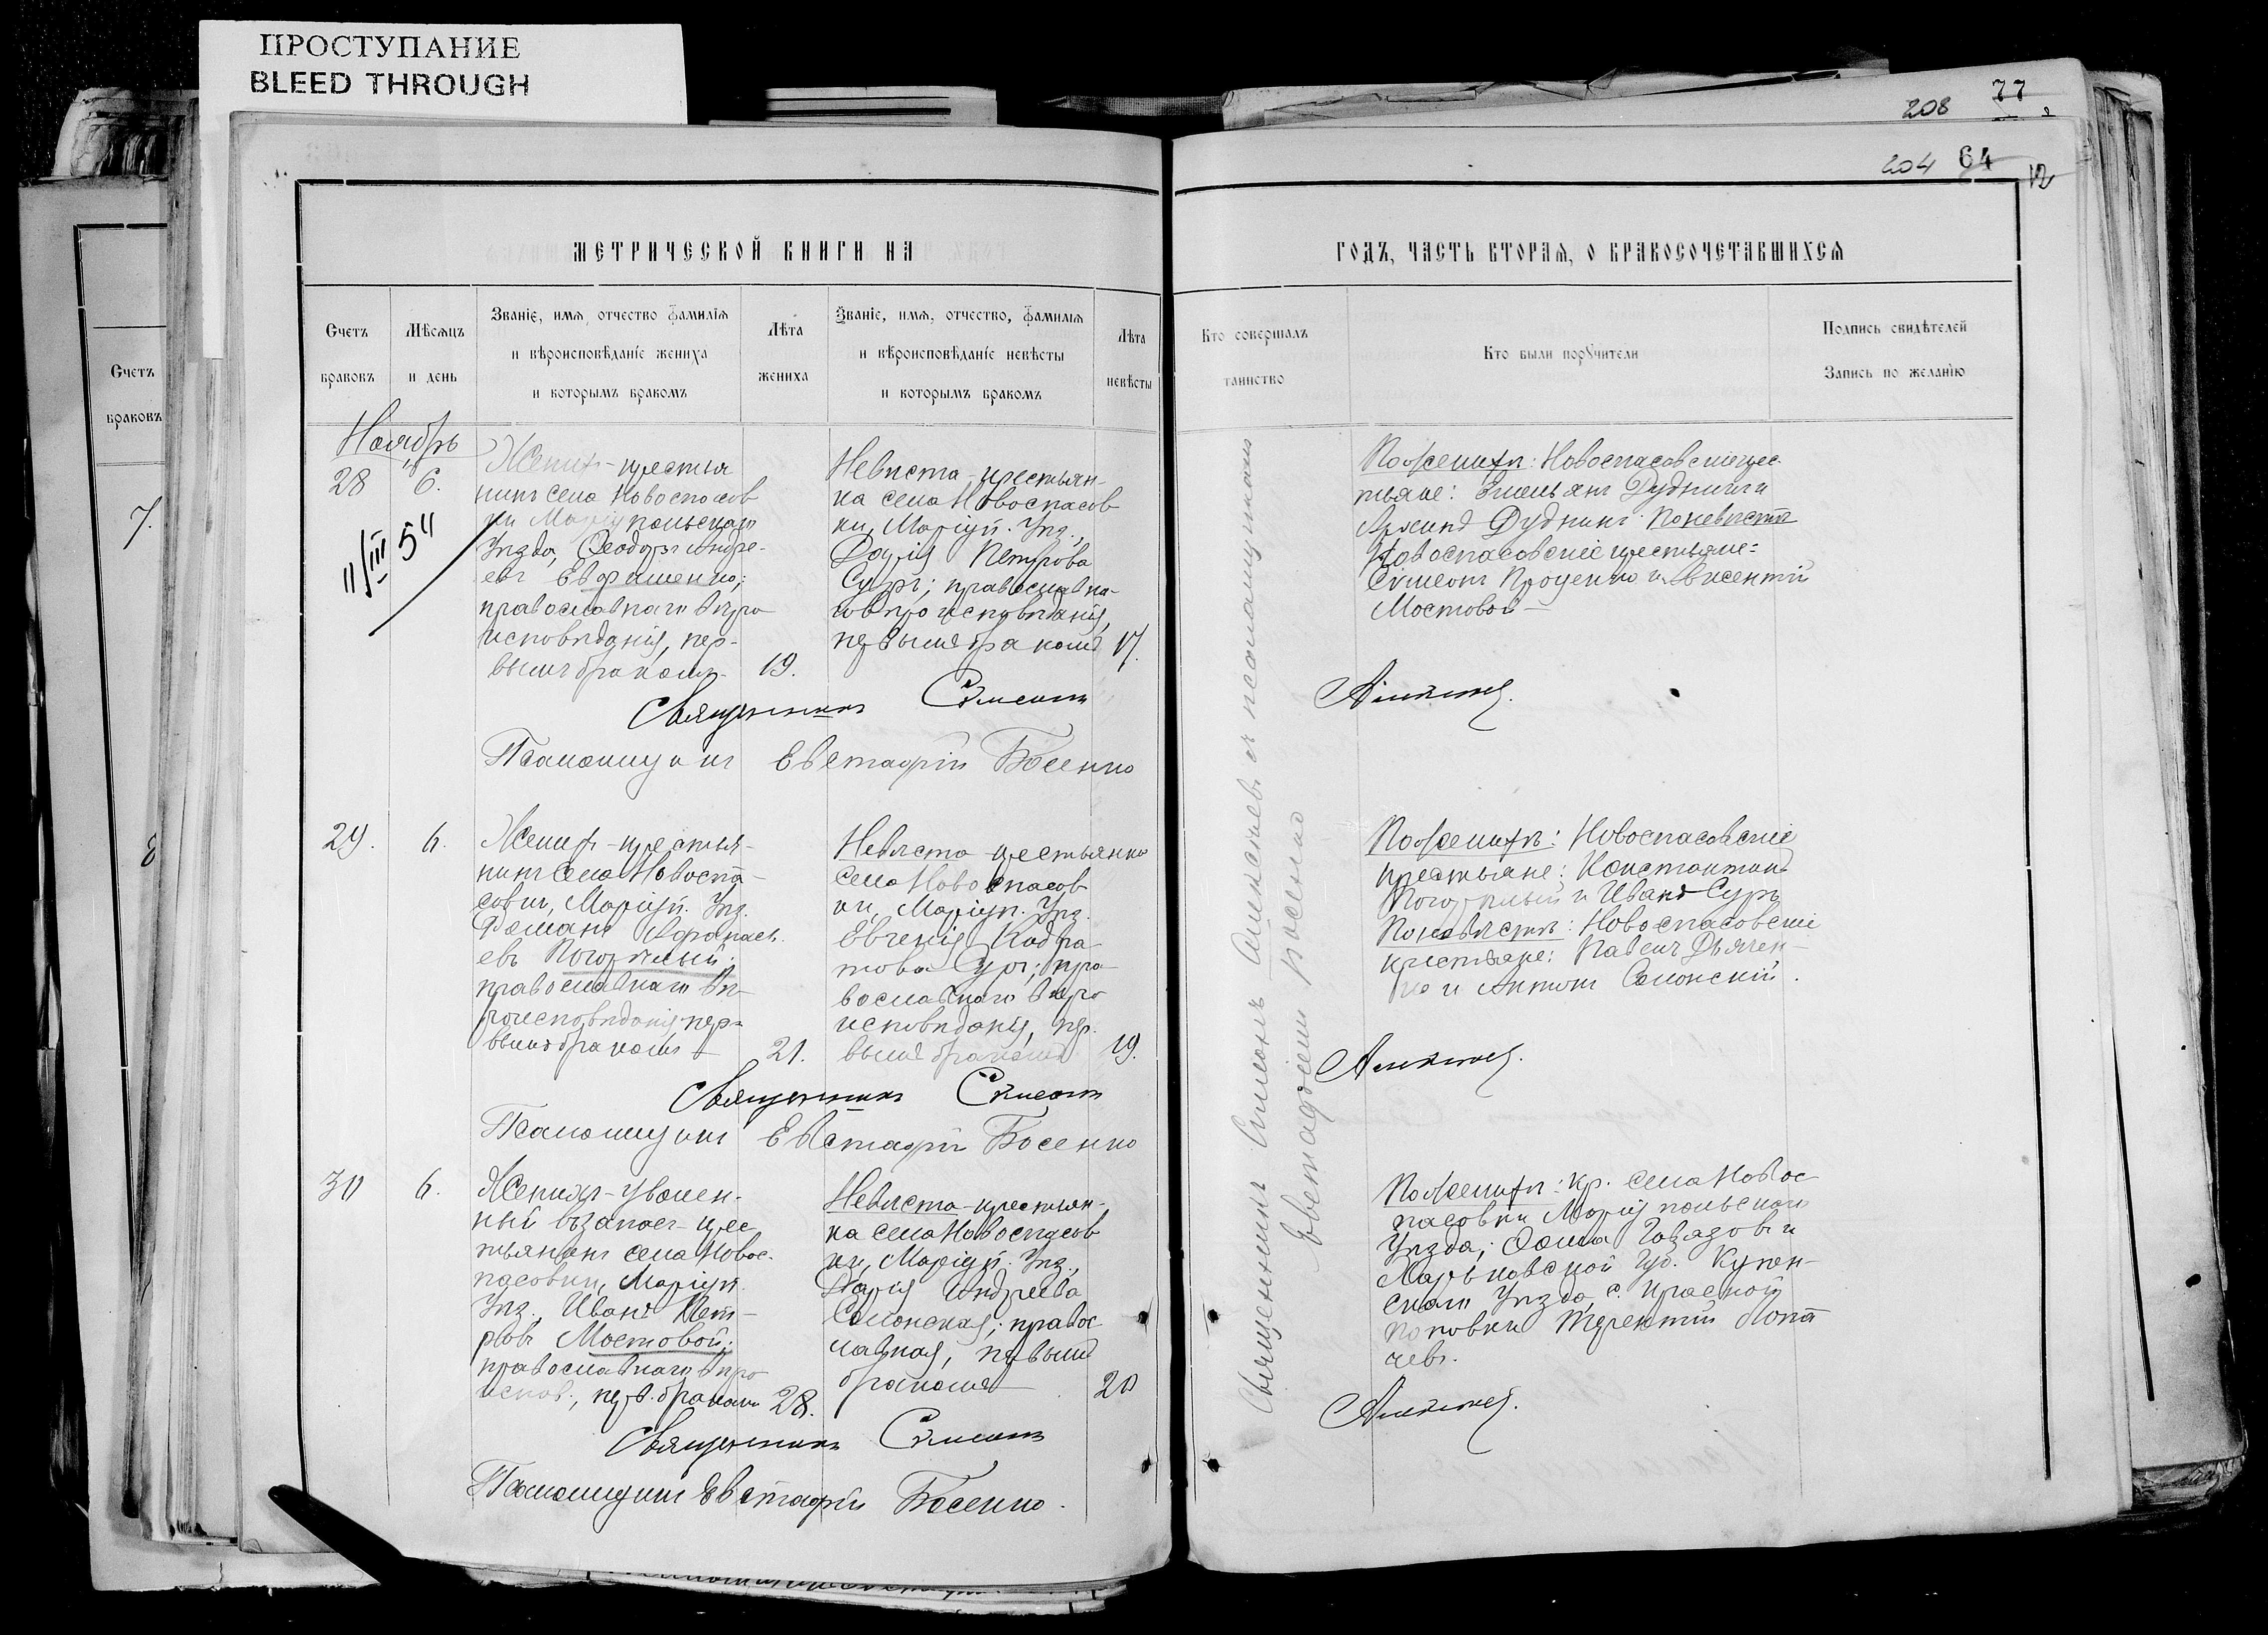 ПРОСТУПАНИЕ
BLEED THROUGH
208 77
204 64
12
МЕТРИЧЕСКОЙ КНИГИ НА
ГОДЪ, ЧАСТЬ ВТОРАѦ, О БРАКОСОЧЕТАВШИХСѦ
Счетъ
браковъ
Мѣсѧцъ
и день
Званіе, имѧ, отчество фамиліѧ
и вѣроисповѣданіе жениха
и которымъ бракомъ
Лѣта
жениха
Званіе, имѧ, отчество, фамиліѧ
и вѣроисповѣданіе невѣсты
и которымъ бракомъ
Лѣта
невѣсты
Кто совершалъ
таинство
Кто были порꙋчители
Подпись свидѣтелей
Запись по желанію
Счетъ
браковъ
7.
8
Ноябрь
28 6.
11/III 54
Женихъ - крестья
нинъ села Новоспасов
ки Маріупольскаго
Уѣзда, Ѳеодоръ Андре-
евъ Евфименко;
православнаго вѣро
исповѣданія, пер-
вымъ бракомъ
19.
Невѣста - крестьян-
ка села Новоспасов
ки, Маріуп. Уѣз.,
Дарія Петрова
Суръ; православна-
го вѣроисповѣданія,
первымъ бракомъ
17.
Священникъ Сѵмеонъ
Псаломщикъ Евстафій Босенко
По женихѣ: Новоспасовскіе крес-
тьяне: Емельянъ Дудникъ и
Дудникъ По невѣстѣ
Новоспасовскіе крестьяне:
Сѵмеонъ Проценко и Авксентій
Мостовой
Алексѣевъ.
29. 6.
Женихъ - крестья-
нинъ села Новоспа-
совки, Маріуп. Уѣз.
Романъ Афанась
евъ Погорѣлый;
православнаго вѣ-
роисповѣданія, пер-
вымъ бракомъ
21.
Невѣста - крестьянка
села Новоспасов
ки, Маріуп. Уѣз.
Евгенія Кодра
това Суръ; пра-
вославнаго вѣро
исповѣданія, пер.
вымъ бракомъ
19.
Священникъ Сѵмеонъ
Псаломщикъ Евстафій Босенко
По женихѣ: Новоспасовскіе
крестьяне: Константинъ
Погорѣлый и Иванъ Суръ
По невѣстѣ: Новоспасовскіе
крестьяне: Павелъ Дьячен-
ко и Антонъ Салонскій.
Алексѣевъ.
30 6.
Женихъ - уволен-
ный въ запас крес
тьянинъ села Новос-
пасовки, Маріуп.
Уѣз. Иванъ Пет-
ровъ Мостовой;
православнаго вѣро
испов., перв. бракомъ
28.
Невѣста - крестьян-
ка села Новоспасов
ки, Маріуп. Уѣз.,
Марія Андреева
Салонская; правос
лавная, первымъ
бракомъ
20
Священникъ Сѵмеонъ
Псаломщикъ Евстафій Босенко.
По женихѣ: кр. села Новос
пасовки Маріупольскаго
Уѣзда; Ѳома и
Харьковской Губ. Купян-
скаго Уѣзда с. Красной
Поповки Терентій Лопа
чевъ.
Алексѣевъ.
Священникъ Сѵмеонъ Алексѣевъ съ псаломщикомъ
Евстафіемъ Босенко